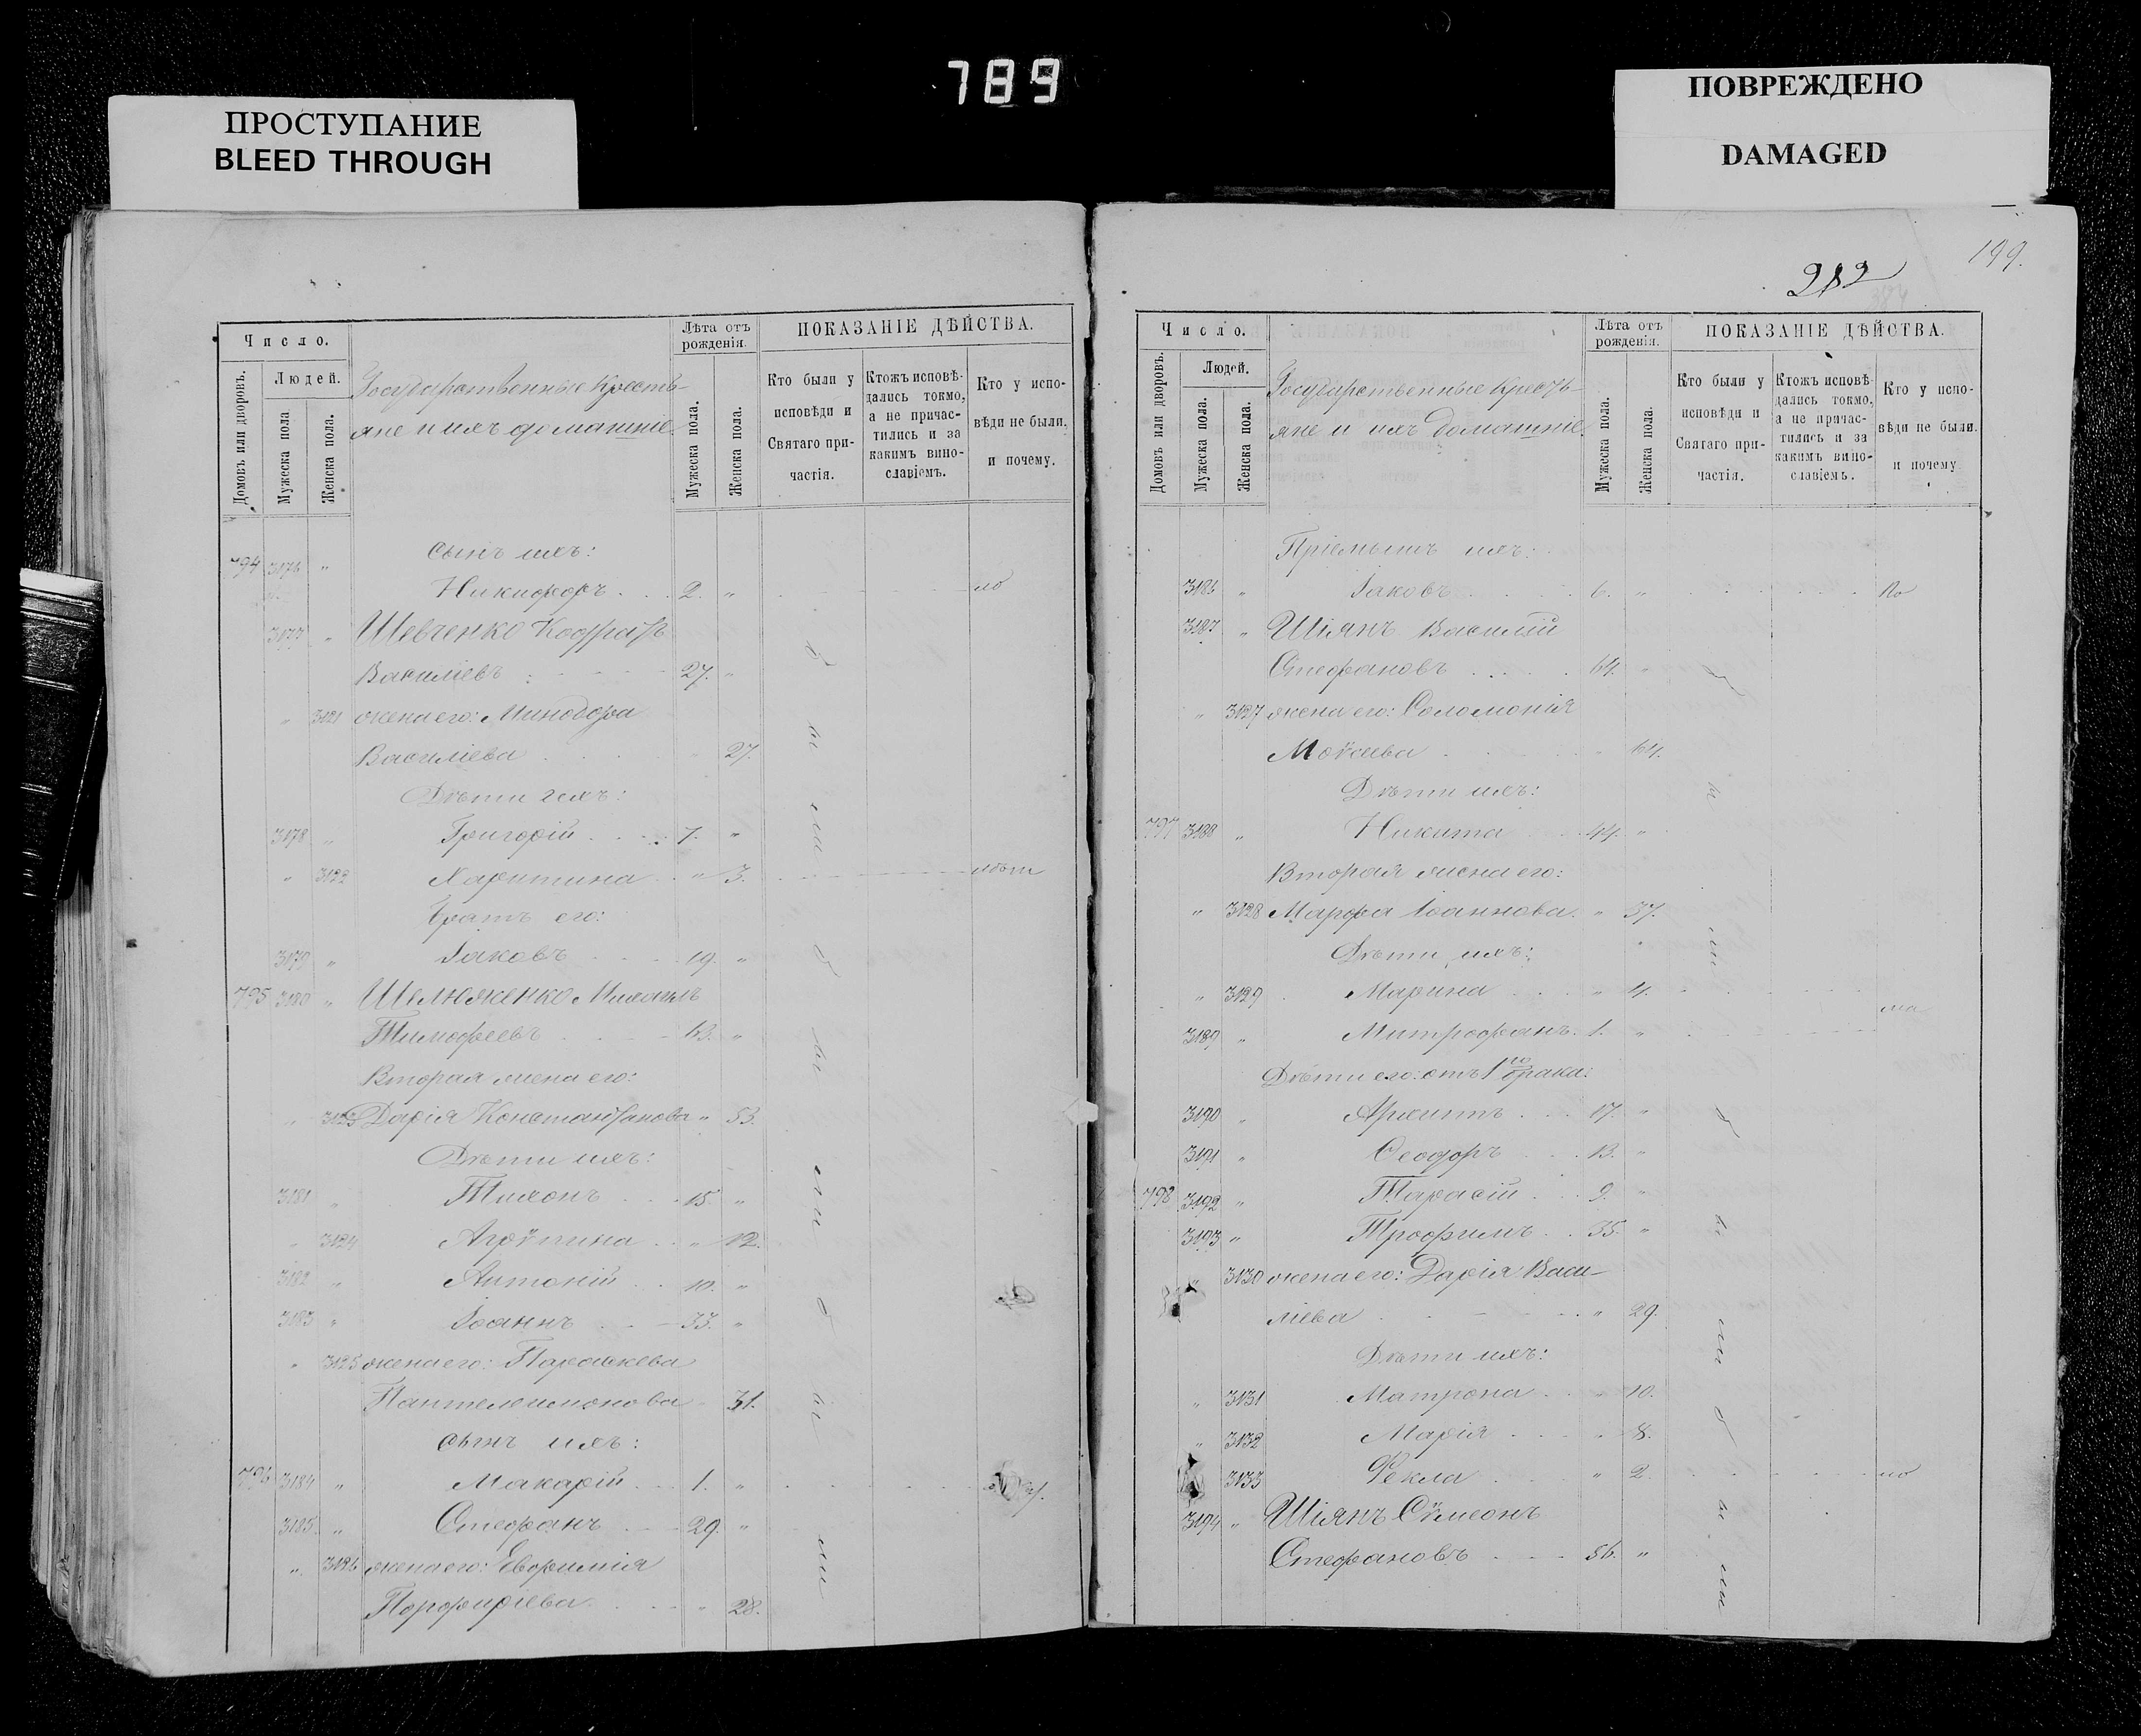 789
ПРОСТУПАНИЕ
BLEED THROUGH
ПОВРЕЖДЕНО
DAMAGED
Число.
Людей.
Домовъ или дворовъ.
Мужеска пола
Женска пола.
Государственные крестъ-
яне и ихъ домашніе.
Лѣта отъ
рожденія.
Мужеска пола.
Женска пола.
ПОКАЗАНІЕ ДѢЙСТВА.
Кто были у
исповѣди и
Святаго при-
частія.
Ктожъ исповѣ-
дались токмо,
а не причас-
тились и за
какимъ вино-
славіемъ.
Кто у испо-
вѣди не были,
и почему.
794 3176 " сынъ ихъ:
Никифоръ 2. " по
3177 " Шевченко Кодратъ
Василіевъ 27. "
" 3121 жена его: Минодора
Василіева " 27.
Дѣти ихъ:
3178 " Григорій 7. "
" 3122 Харитина " 3.
Братъ его:
3179 " Іаковъ 19. "
795 3180 " Шелюженко Михаилъ
Тимофеевъ 63. "
Вторая жена его:
" 3123 Дарія Константинова " 53.
Дѣти ихъ:
3181 " Тихонъ 15. "
" 3124 Агрѵпина " 12.
3182 " Антоній 10. "
3183 " Іоаннъ 33. "
" 3125 жена его: Параскева
Пантелеимонова 31.
сынъ ихъ:
796 3184 " Макарій 1. "
3185 " Стефанъ 29. "
" 3126 жена его: Евфимія
Порфиріева " 28.
199.
282
Число.
Людей.
Домовъ или дворовъ.
Мужеска пола.
Женска пола.
Государственные кресть-
яне и ихъ домашніе.
Лѣта отъ
рожденія.
Мужеска пола.
Женска пола.
ПОКАЗАНІЕ ДѢЙСТВА.
Кто были у
исповѣди и
Святаго при-
частія.
Ктожъ исповѣ-
дались токмо,
а не причас-
тились и за
какимъ вино-
славіемъ.
Кто у испо-
вѣди не были.
и почему
Пріемышъ ихъ:
3186 " Іаковъ 6. " По
3187 " Шіянъ Василій
Стефановъ 64. "
" 3127 жена его: Соломонія
Моѵсеева " 64.
Дѣти ихъ:
797 3188 " Никита 44. "
Вторая жена его:
" 3128 Марфа Іоаннова. " 37.
Дѣти ихъ:
" 3129 Марина " 4.
3189 " Митрофанъ. 1. "
Дѣти его отъ 1го брака:
3190 " Архиппъ 17. "
3191 " Ѳеодоръ 13. "
798 3192 " Тарасій 9. "
3193 " Трофимъ 35. "
" 3130 жена его: Дарія Васи-
ліева " 29.
Дѣти ихъ:
" 3131 Матрона " 10.
" 3132 Марія " 8.
3133 Ѳекла " 2. по
3194 " Шіянъ Сѵмеонъ
Стефановъ 56. "